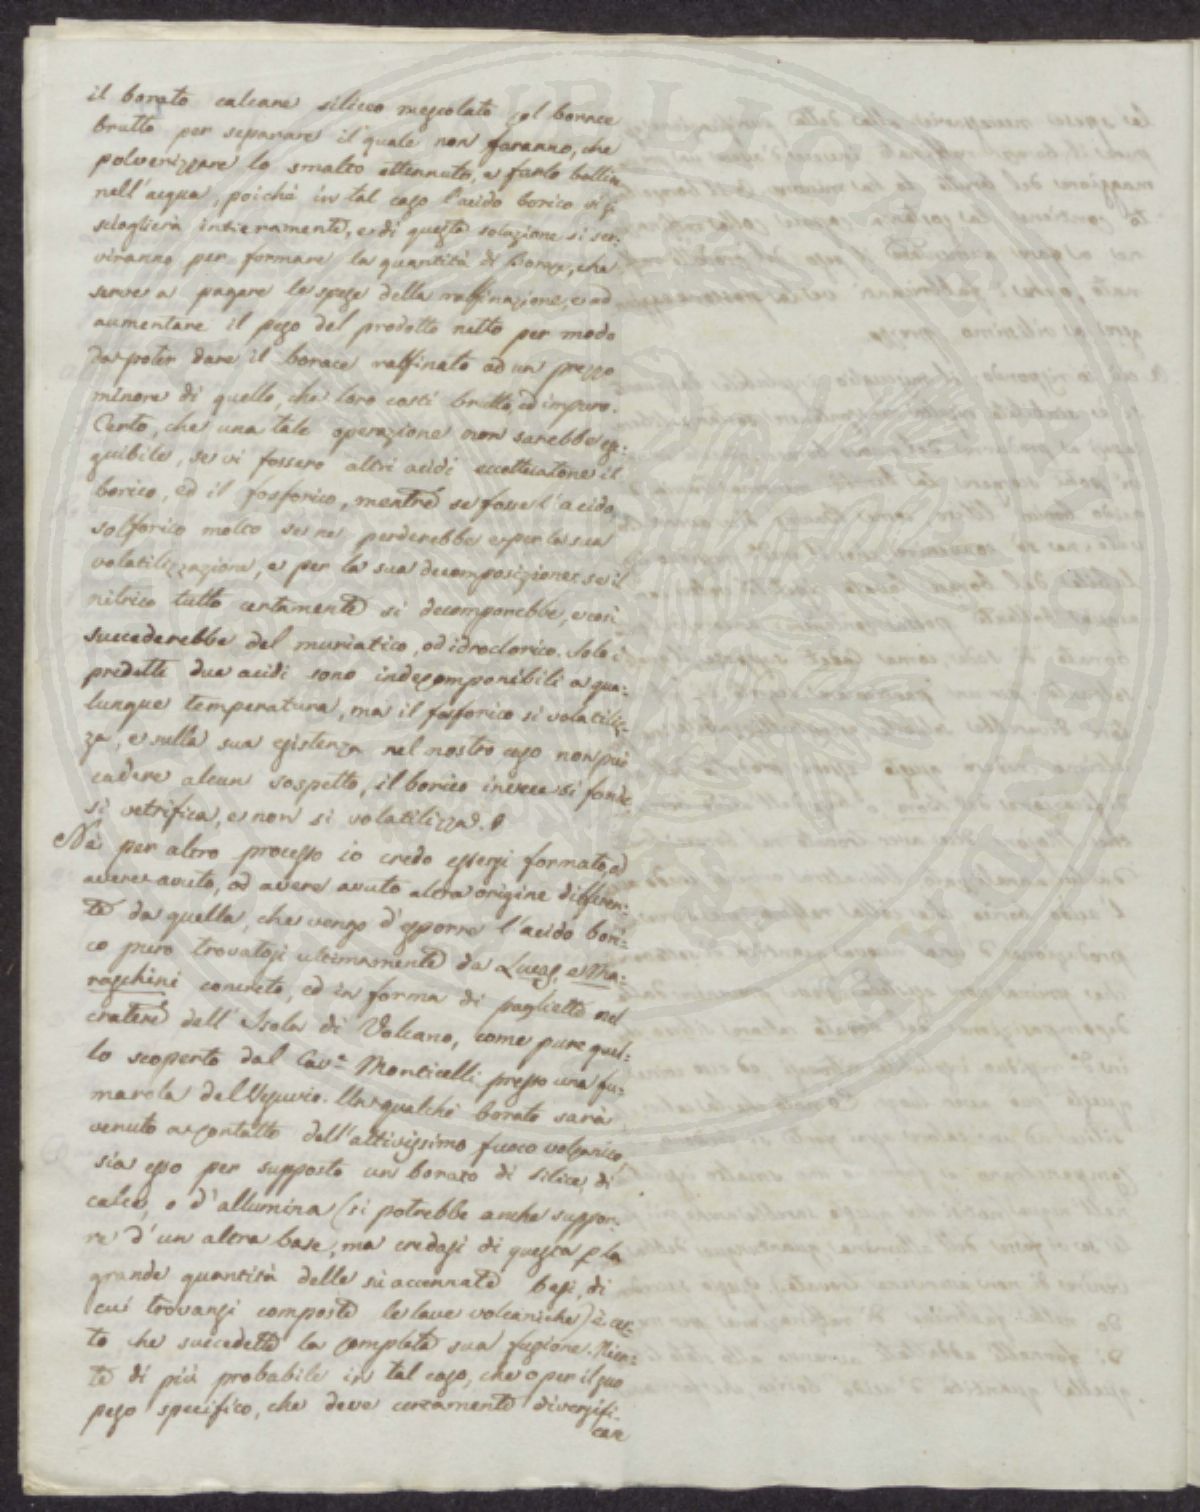 il borato calcare siliceo mescolato col borace
brutto per separare il quale non faranno, che
polverizzare lo smalto ottennuto, e farlo bollire
nell'acqua, poichè in tal caso l'acido borico vi si
scioglierà intieramente, e di questa soluzione si ser:
viranno per formare la quantità di Borax, che
serve a pagare le spese della raffinazione, e ad
aumentare il peso del prodotto netto per modo
da poter dare il borace raffinato ad un prezzo
minore di quello, che loro costi brutto, ed impuro.
Certo, che una tale operazione non sarebbe ese:
guibile, se vi fossero altri acidi eccettuatone il
borico, ed il fosforico, mentre se fosse l'acido
solforico molto se ne perderebbe e per la sua
volatilizzazione, e per la sua decomposizione: se il
nitrico tutto certamente si decomporebbe, e così
succederebbe del muriatico, od idroclorico. Solo i
predetti due acidi sono indecomponibili a qua:
lunque temperatura, ma il fosforico si volatiliz:
za, e sulla sua esistenza nel nostro caso non può
cadere alcun sospetto, il borico invece si fonde
si vetrifica, e non si volatilizza.
Nè per altro processo io credo essersi formato, od
avere avuto, od avere avuto altra origine differen:
te da quella, che vengo d'esporre l'acido bori:
co puro trovatosi ultimamente da Lucas, e Ma:
raschini concreto, ed in forma di pagliette nel
cratere dell'Isola di Volcano, come pure quel:
lo scoperto dal Cav.e Monticelli presso una fu:
marola del Vesuvio. Un qualche borato sarà
venuto a contatto dell'attivissimo fuoco volcanico,
sia esso per supposto un borato di silice, di
calce, o d'allumina (si potrebbe anche suppor:
re d'un altra base, ma credasi di questa p la
grande quantità delle sù accennate basi, di
cui trovansi composte le lave volcaniche) è cer:
to che succedette la completa sua fusione. Nien:
te di più probabile in tal caso, che o per il suo
peso specifico, che deve certamente diversifi:
care